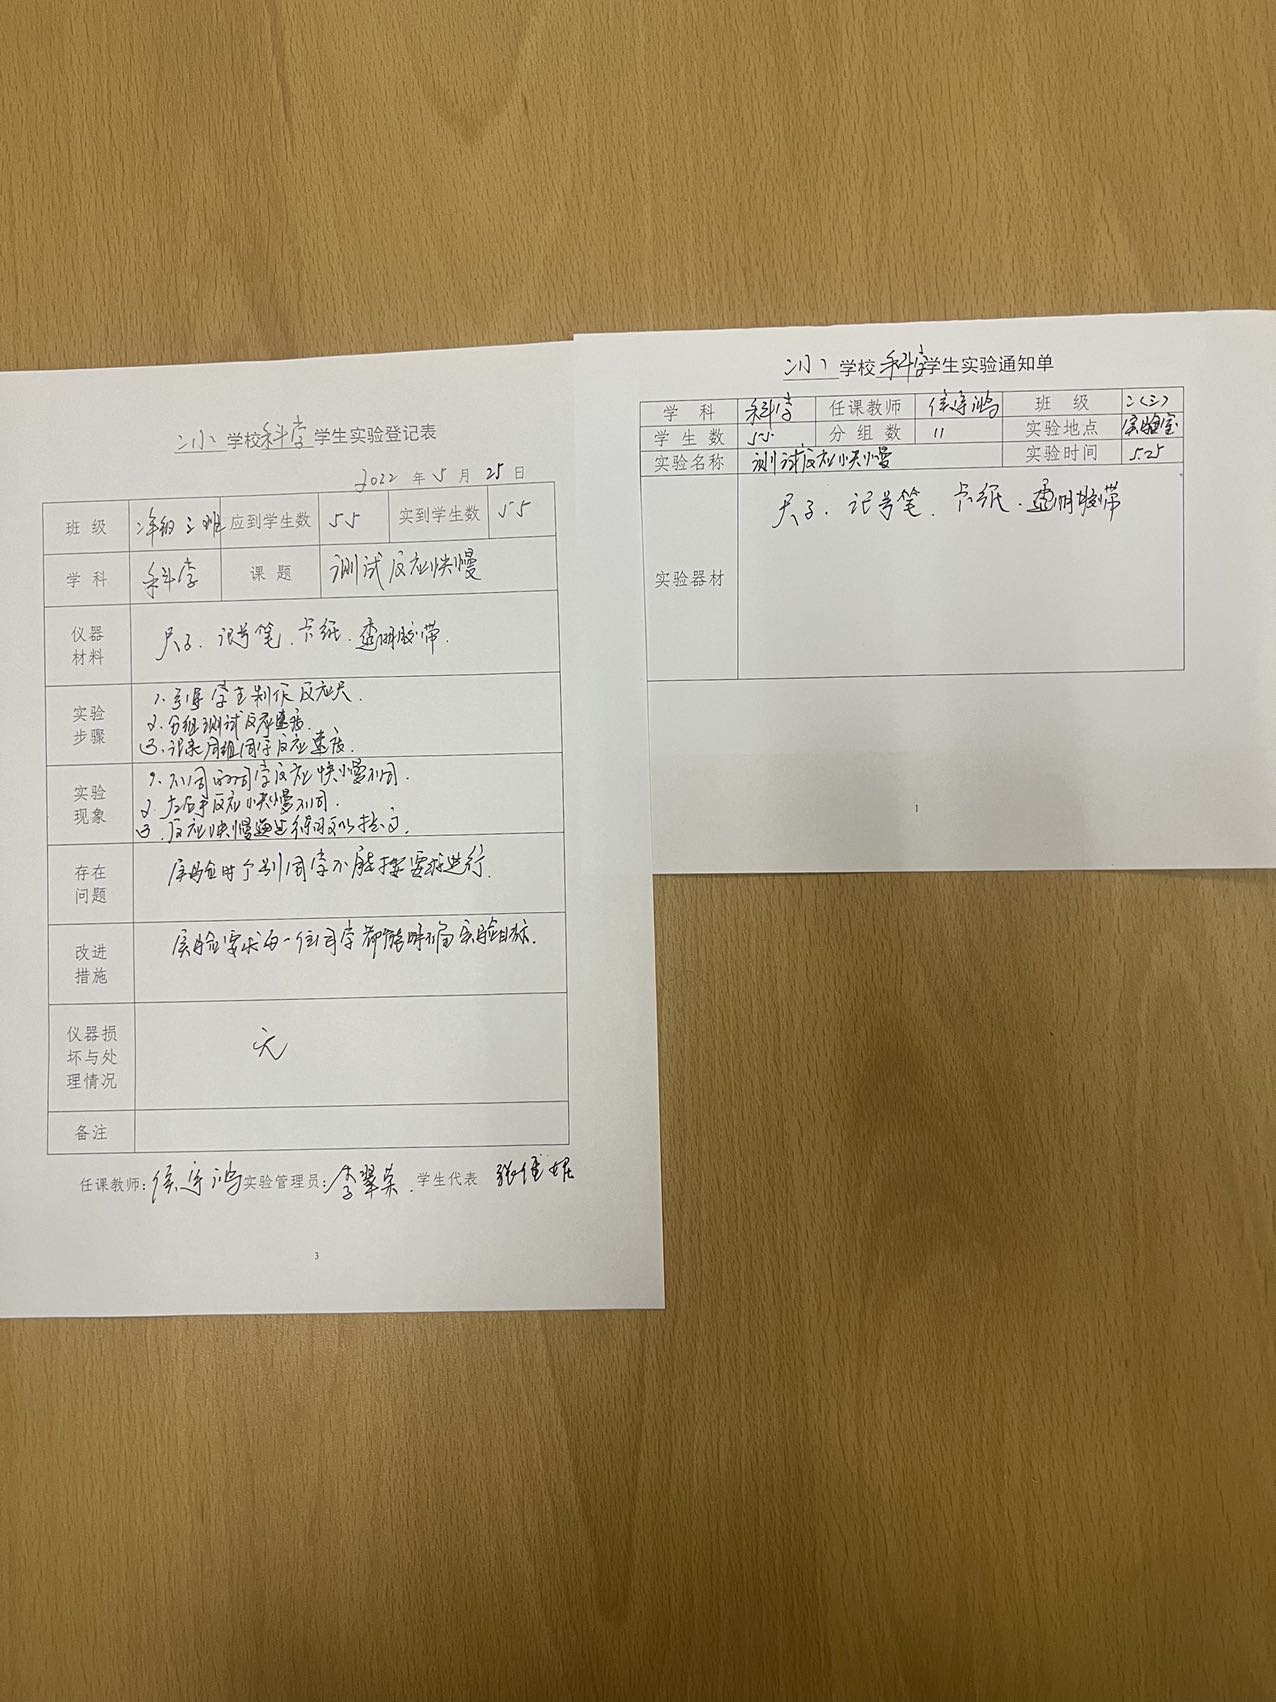 二小 学校 科学 学生实验登记表
2022 年 5 月 25 日
班 级 二年级三班 应到学生数 55 实到学生数 55
学 科 科学 课 题 测试反应快慢
仪器材料 尺子、记号笔、卡纸、透明胶带.
实验步骤 1. 引导学生制作反应尺.
2. 分组测试反应速度.
3. 记录同组同学反应速度.
实验现象 1. 不同的同学反应快慢不同.
2. 左右手反应快慢不同.
3. 反应快慢通过练习可以提高.
存在问题 实验时个别同学不能按要求进行.
改进措施 实验要求每一位同学都能明确实验目标.
仪器损坏与处理情况 无
备注
任课教师: 侯宇鸿 实验管理员: 李翠英. 学生代表
3
二小 学校 科学 学生实验通知单
学 科 科学 任课教师 侯宇鸿 班 级 二(三)
学 生 数 55 分 组 数 11 实验地点 实验室
实验名称 测试反应快慢 实验时间 5.25
实验器材 尺子、记号笔、卡纸、透明胶带
1